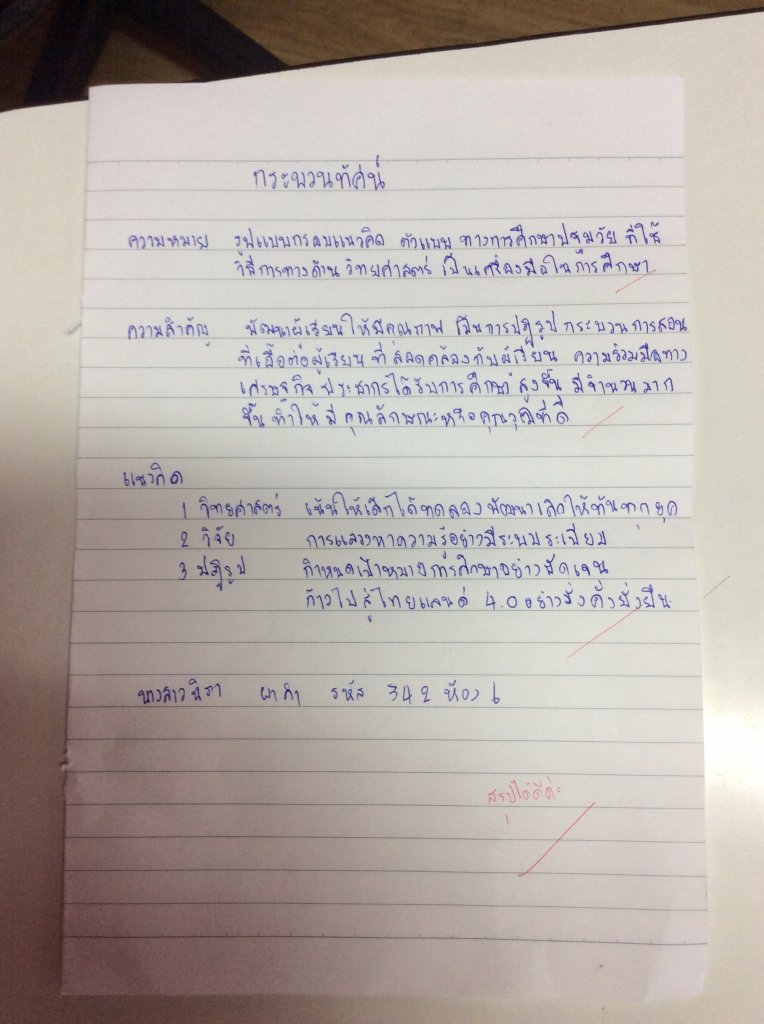 กระบวนทัศน์
ความหมาย รูปแบบกรอบแนวคิด ตัวแบบ ทางการศึกษาปฐมวัย ที่ใช้
วิธีการทางด้าน วิทยศาสตร์ เป็นเครื่องมือในการศึกษา
ความสำคัญ พัฒนาผู้เรียนให้มีคุณภาพ เป็นการปฏิรูป กระบวน การสอน
ที่เอื้อต่อผู้เรียน ที่ สอดคล้องกับผู้เรียน ความร่วมมือทาง
เศรษฐกิจ ประชากรได้รับการศึกษา สูงขึ้น มีจำนวนมาก
ขึ้น ทำให้ มี คุณลักษณะหรือคุณวุฒิที่ดี
แนวคิด
1 วิทยศาสตร์ เน้นให้เด็กได้ทดลอง พัฒนาเด็กให้ทันทุกยุค
2 วิจัย การแสวงหาความรู้อย่างมีระบบระเบียบ
3 ปฏิรูป กำหนดเป้าหมายการศึกษาอย่างชัดเจน
ก้าวไปสู่ไทยแลนด์ 4.0 อย่างมั่งคั่งยั่งยืน
นางสาวนิธา รหัส 342 ห้อง 6
สรุปได้ดีค่ะ